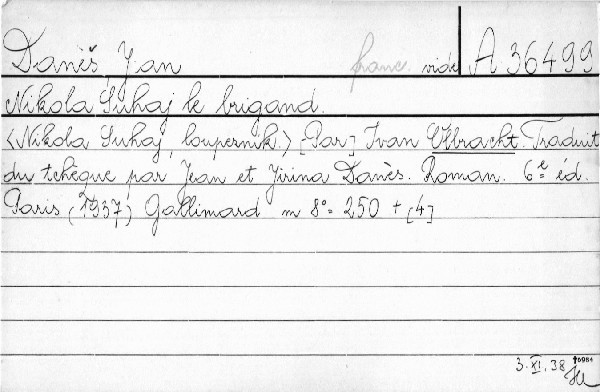 Daněš, Jan franc. vide A 36499
Nikola Šuhaj le brigand.
<Nikola Šuhaj, loupežník.> [Par] Ivan Olbracht. Traduit
du tchèque par Jean et Jiřina Danès. Roman. 6e éd.
Paris (1937) Gallimard m 8° 250 + [4]
3. XI. 38